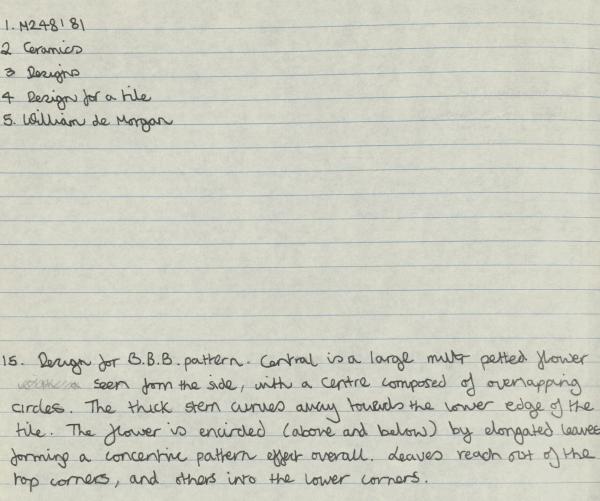 1. M248'81
2 Ceramics
3 Designs
4 Design for a tile
5. William de Morgan
15. Design for B.B.B. pattern. Central is a large multi petled flower
seen from the side, with a centre composed of overlapping
circles. The thick stem curves away towards the lower edge of the
tile. The flower is encircled (above and below) by elongated leaves
forming a concentric pattern effect overall. Leaves reach out of the
top corners, and others into the lower corners.